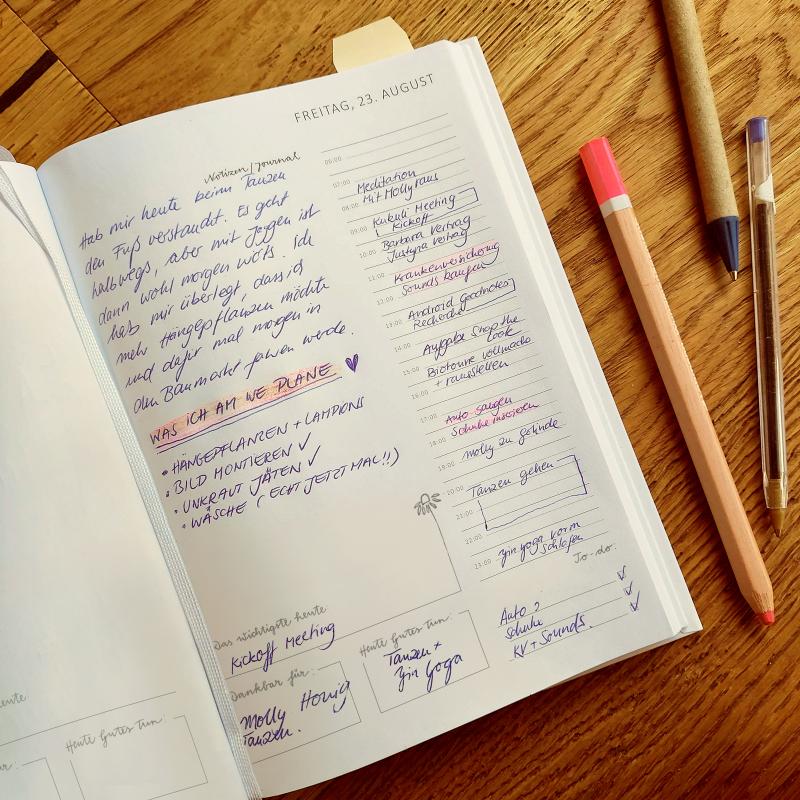 FREITAG, 23. AUGUST
Notizen/Journal
Hab mir heute beim Tanzen
den Fuß verstaucht. Es geht
halbwegs, aber mit Joggen ist
dann wohl morgen nix. Ich
hab mir überlegt, dass ich
mehr Hängepflanzen möchte
und dafür mal morgen in
den Baumarkt fahren werde.
WAS ICH AM WE PLANE
• HÄNGEPFLANZEN + LAMPIONS
• BILD MONTIEREN ✓
• UNKRAUT JÄTEN ✓
• WÄSCHE (ECHT JETZT MAL!!)
06:00
07:00
Meditation
08:00
Mit Molly raus
09:00
Kukuli Meeting
Kickoff
10:00
Barbara Vertrag
Justyna Vertrag
11:00
Krankenversicherung
12:00
Sounds kaufen
13:00
Android Goodnotes
Recherche
14:00
Aufgabe Shop the
Look
15:00
Biotonne vollmachen
16:00
+ rausstellen
17:00
Auto saugen
18:00
Schuhe
19:00
Molly zu
20:00
Tanzen gehen
21:00
22:00
23:00
Yin Yoga vorm
Schlafen
To-do:
Auto ✓
Schuhe ✓
KV + Sounds. ✓
Das wichtigste heute
Kickoff Meeting
Dankbar für:
Molly Honig
Tanzen.
Heute Gutes tun:
Tanzen +
Yin Yoga
heute
Heute Gutes tun: